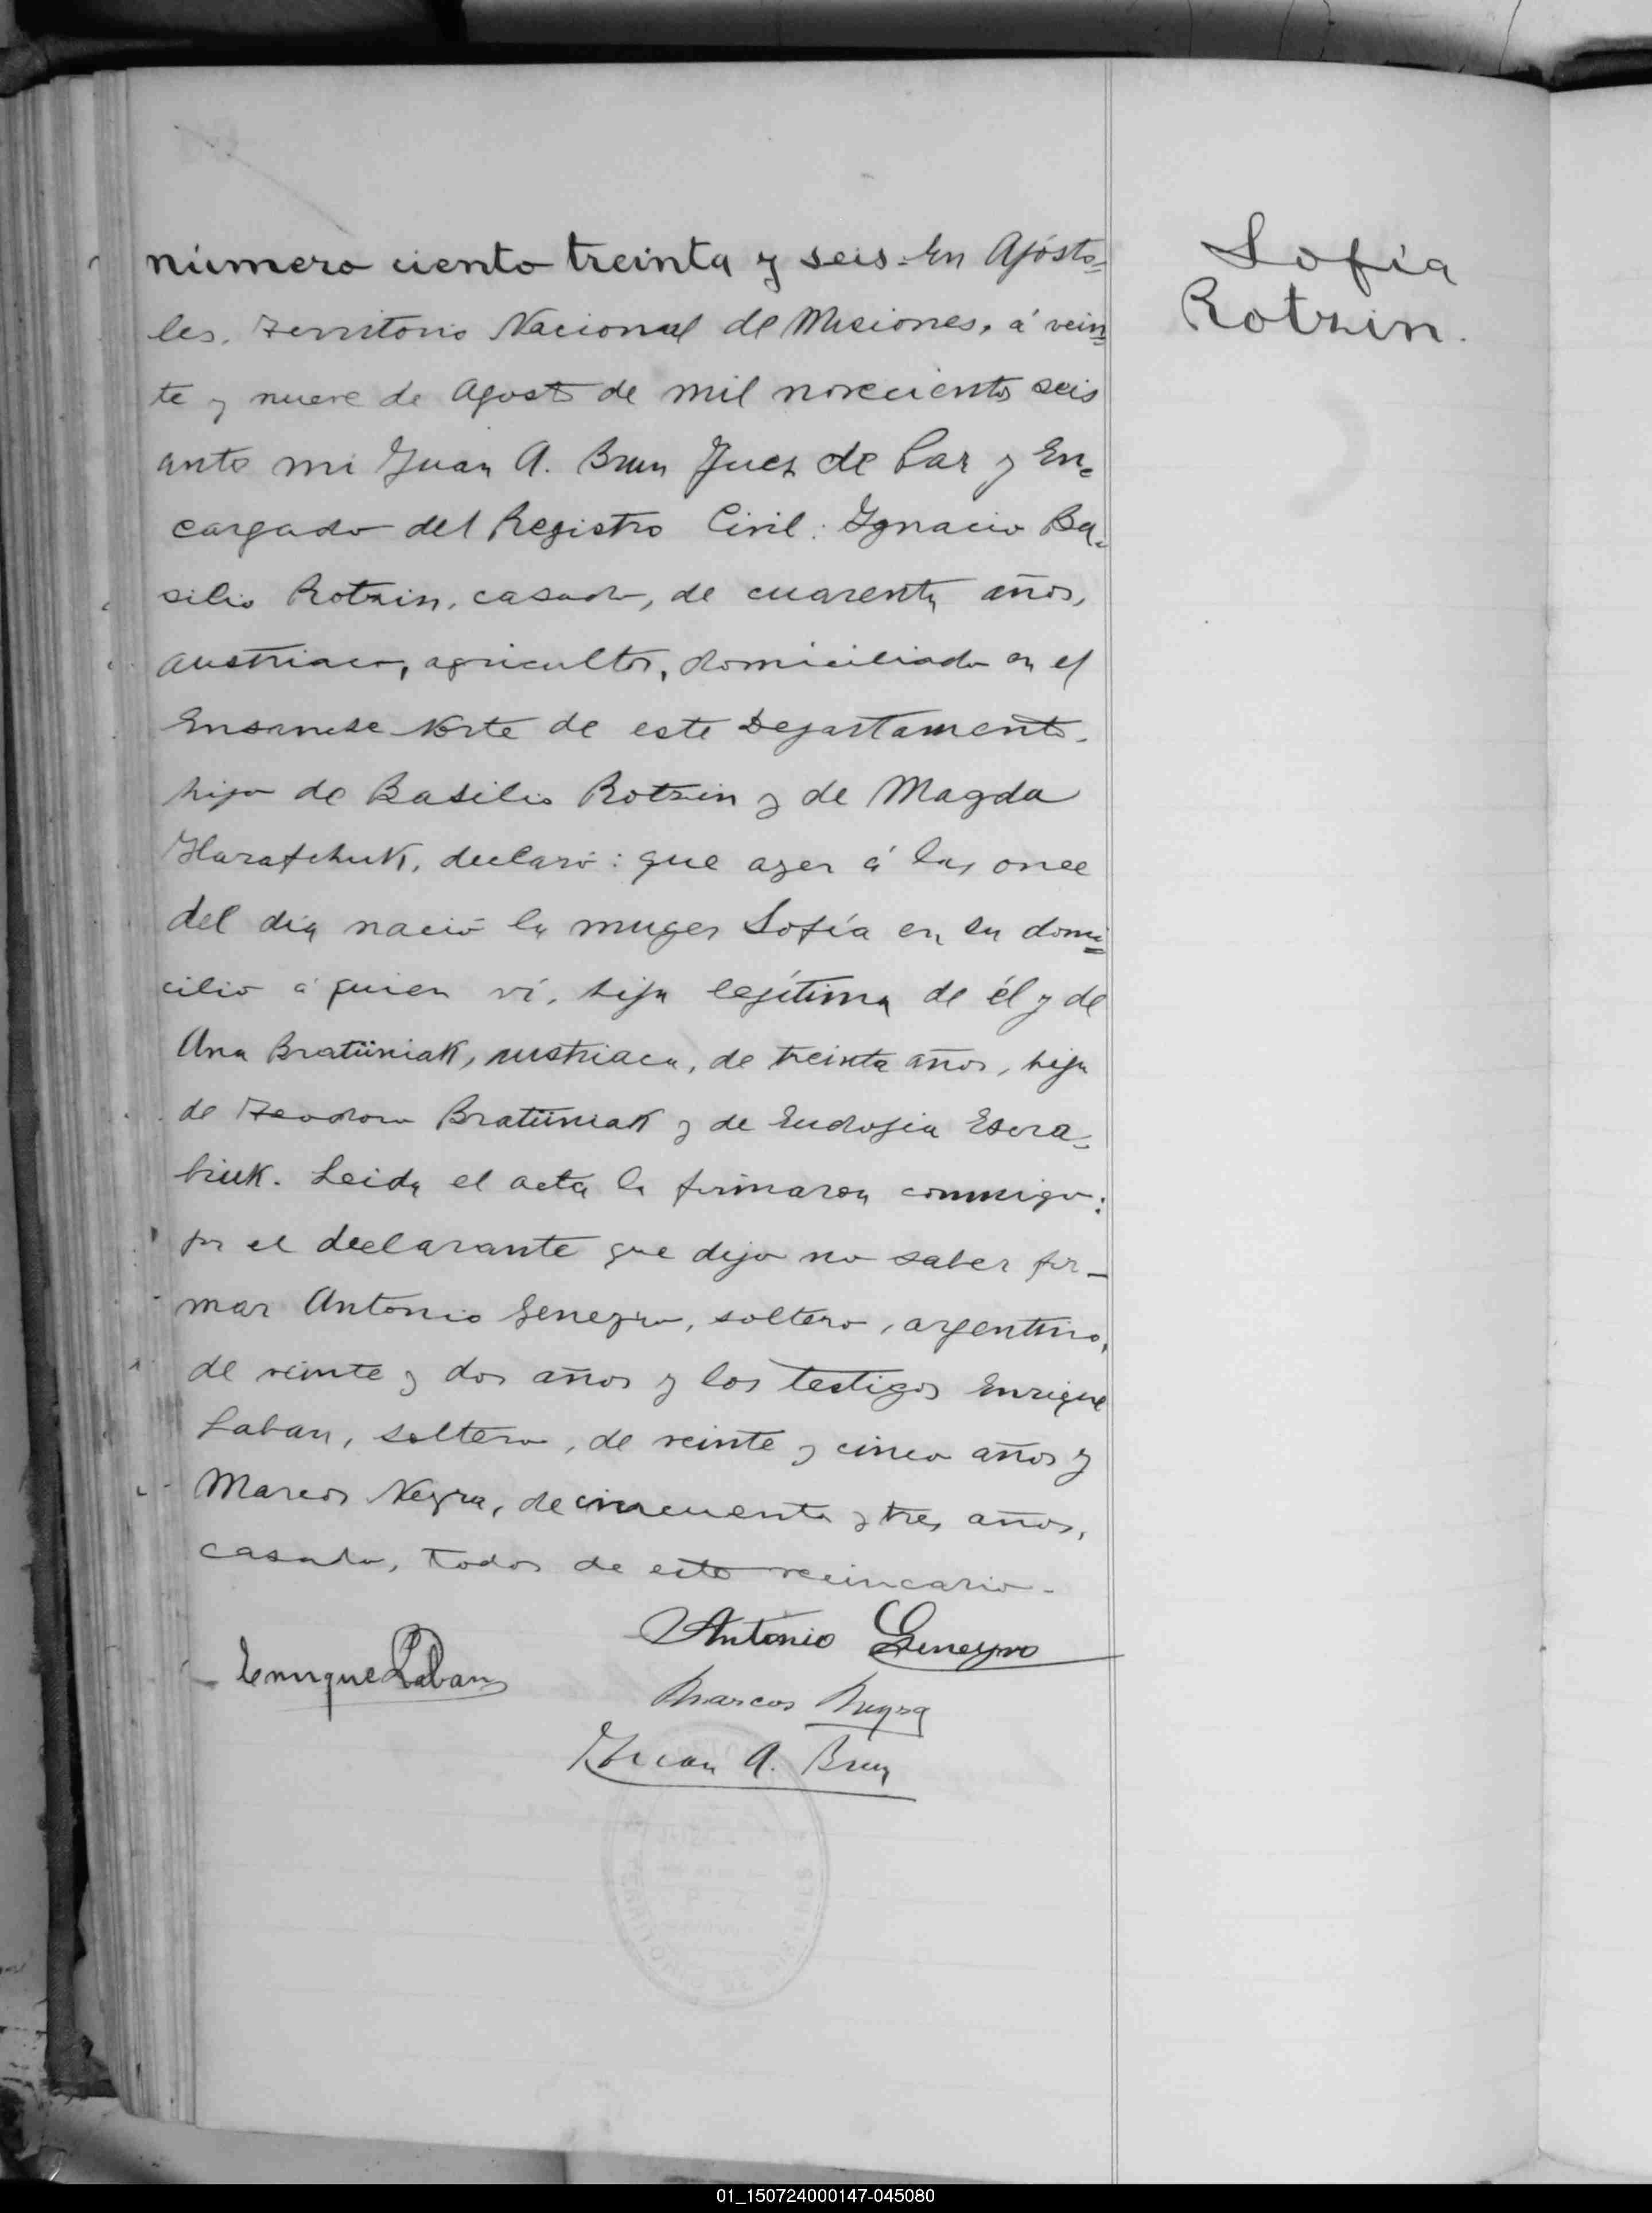 número ciento treinta y seis. En Apósto=
les, Territorio Nacional de Misiones, á vein=
te y nueve de Agosto de mil novecientos seis
ante mi Juan A. Brun Juez de Paz y En=
cargado del Registro Civil: Ignacio Ba=
silio Rotzin, casado, de cuarenta años,
austriaco, agricultor, domiciliado en el
Ensanche Norte de este Departamento,
hijo de Basilio Rotzin y de Magda
declaró: que ayer á las once
del dia nació la muger Sofía en su domi=
cilio á quien ví, hija legítima de él y de
Ana Bratüniak, austriaca, de treinta años, hija
de Teodoro Bratüniak y de
Leida el acta la firmaron conmigo:
por el declarante que dijo no saber fir-
mar Antonio Genegro, soltero, argentino,
de veinte y dos años y los testigos Enrique
Laban, soltero, de veinte y cinco años y
Marcos Negra, de cincuenta y tres años,
casado, todos de este vecindario.
Antonio Genegro
Enrique Laban
Marcos Negra
Juan A. Brun
Sofía
Rotzin.
01_150724000147-045080